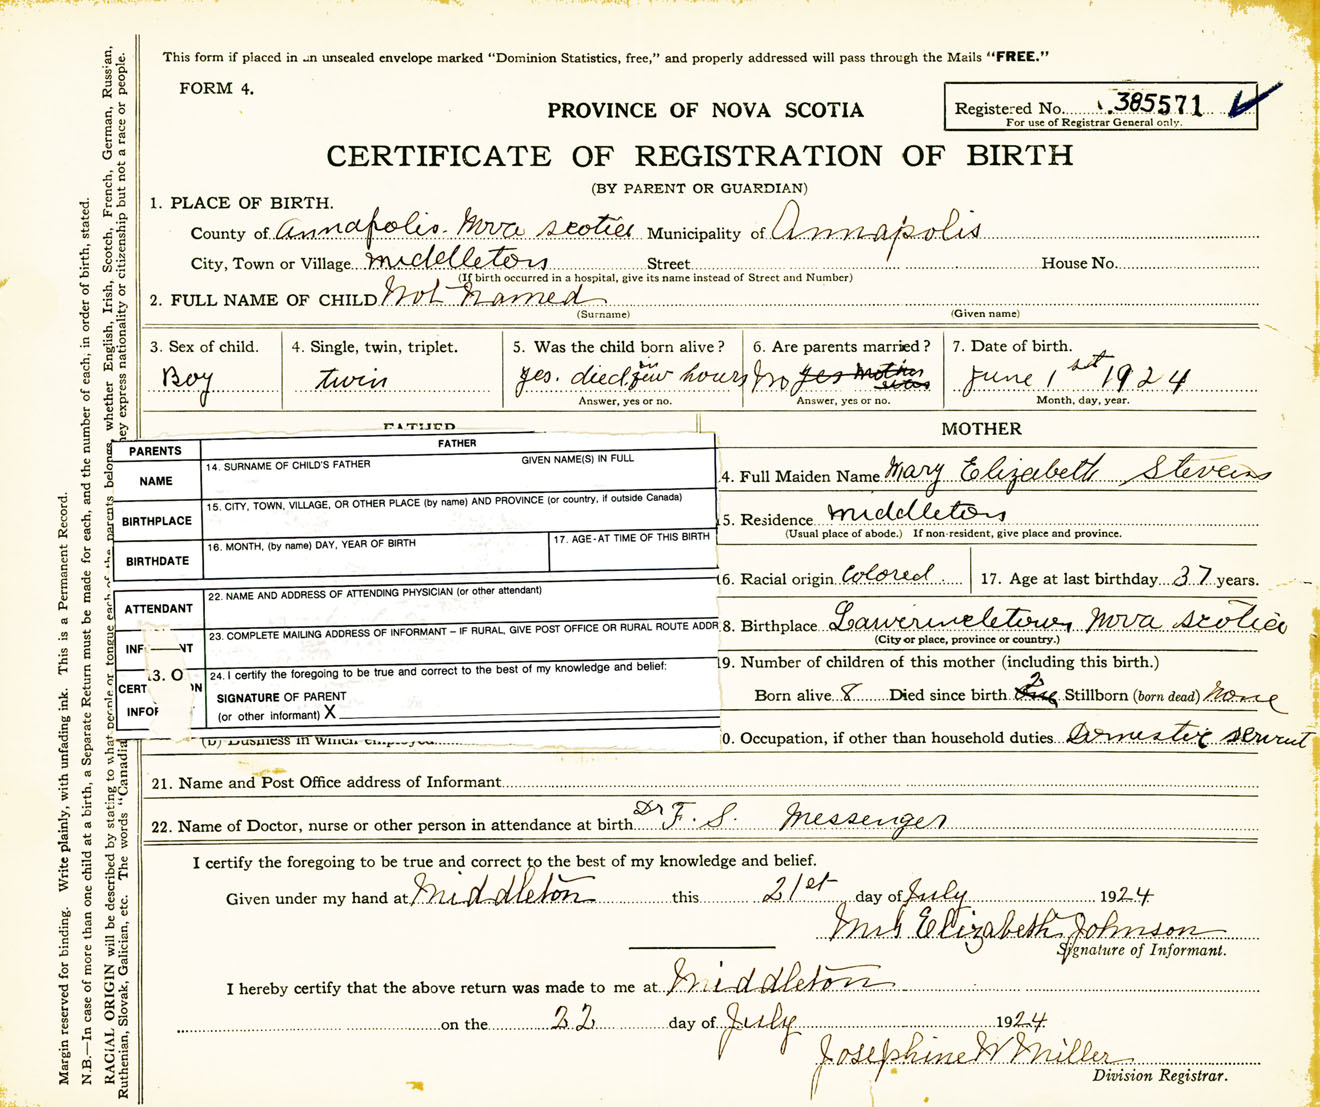 This form if placed in an unsealed envelope marked "Dominion Statistics, free," and properly addressed will pass through the Mails "FREE."
FORM 4.
PROVINCE OF NOVA SCOTIA
Registered No. 385571
For use of Registrar General only.
CERTIFICATE OF REGISTRATION OF BIRTH
(BY PARENT OR GUARDIAN)
1. PLACE OF BIRTH.
County of Annapolis. Nova Scotia Municipality of Annapolis
City, Town or Village Middleton Street House No.
(If birth occurred in a hospital, give its name instead of Street and Number)
2. FULL NAME OF CHILD Not Named
(Surname) (Given name)
3. Sex of child. 4. Single, twin, triplet. 5. Was the child born alive? 6. Are parents married? 7. Date of birth.
Boy twin yes. died in few hours No yes Mother June 1st 1924
Answer, yes or no. Answer, yes or no. Month, day, year.
FATHER MOTHER
PARENTS FATHER
NAME 14. SURNAME OF CHILD'S FATHER GIVEN NAME(S) IN FULL
4. Full Maiden Name Mary Elizabeth Stevens
BIRTHPLACE 15. CITY, TOWN, VILLAGE, OR OTHER PLACE (by name) AND PROVINCE (or country, if outside Canada)
5. Residence Middleton
(Usual place of abode.) If non-resident, give place and province.
BIRTHDATE 16. MONTH, (by name) DAY, YEAR OF BIRTH 17. AGE-AT TIME OF THIS BIRTH
6. Racial origin Colored 17. Age at last birthday 37 years.
ATTENDANT 22. NAME AND ADDRESS OF ATTENDING PHYSICIAN (or other attendant)
8. Birthplace Lawerincletown Nova Scotia
(City or place, province or country.)
INF NT 23. COMPLETE MAILING ADDRESS OF INFORMANT – IF RURAL, GIVE POST OFFICE OR RURAL ROUTE ADDR
9. Number of children of this mother (including this birth.)
3. O
CERT ON 24. I certify the foregoing to be true and correct to the best of my knowledge and belief:
SIGNATURE OF PARENT
INFO (or other informant) X
Born alive 8 Died since birth 2 Stillborn (born dead) None
(b) Business in which employed
0. Occupation, if other than household duties Domestic servent
21. Name and Post Office address of Informant
22. Name of Doctor, nurse or other person in attendance at birth Dr F. S. Messenger
I certify the foregoing to be true and correct to the best of my knowledge and belief.
Given under my hand at Middleton this 21st day of July 1924
Mrs Elizabeth Johnson
Signature of Informant.
I hereby certify that the above return was made to me at Middleton
on the 22 day of July 1924
Josephine W Miller
Division Registrar.
Margin reserved for binding. Write plainly, with unfading ink. This is a Permanent Record.
N.B.—In case of more than one child at a birth, a Separate Return must be made for each, and the number of each, in order of birth, stated.
RACIAL ORIGIN will be described by stating to what people or tongue each of the parents belongs, whether English, Irish, Scotch, French, German, Russian,
Ruthenian, Slovak, Galician, etc. The words "Canadia ey express nationality or citizenship but not a race or people.